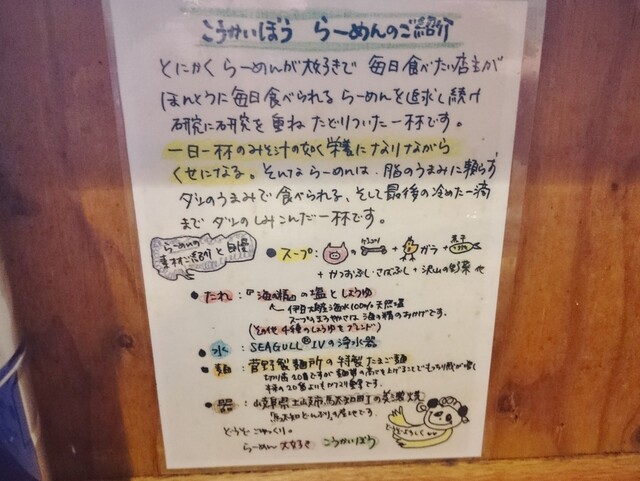 こうかいぼう らーめんのご紹介
とにかく らーめんが大好きで 毎日食べたい店主が
ほんとうに毎日食べられる らーめんを追求し続け
研究に研究を重ね たどりついた一杯です。
一日一杯のみそ汁の如く栄養になりながら
くせになる。そんな らーめんは、脂のうまみに頼らず
ダシのうまみで食べられる、そして最後の冷めた一滴
まで ダシのしみこんだ一杯です。
らーめんの
素材ご紹介と自慢
●スープ: + げんこつ + ガラ + 煮干
+ かつおぶし・さばぶし + 沢山の野菜 他
●たれ:『海の精』の塩としょうゆ
伊豆大島産海水100%天然塩
スープのまろやかさは海の精のおかげです。
(その他4種のしょうゆをブレンド)
●水:SEAGULL®IVの浄水器
●麺:菅野製麺所の特製たまご麺
●器:岐阜県土岐市駄知町の美濃焼
どうぞ ごゆっくり。
らーめん 大好き こうかいぼう
どうぞよろしく